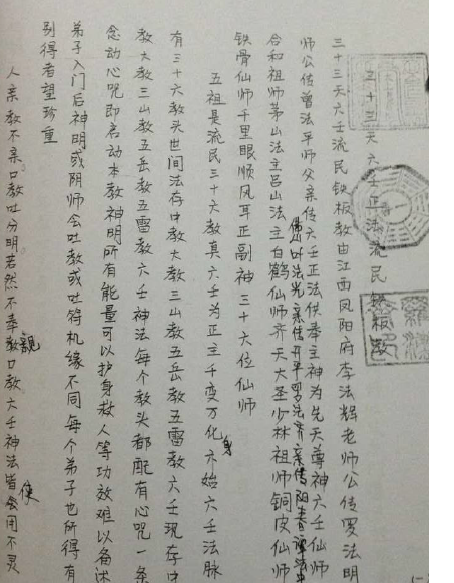 三十三天六壬正法流民铁板教
三十三天六壬流民铁板教由江西凤阳府李法辉老师公传罗法明
师公传曾法平师父亲传六壬正法供奉主神为先天尊神六壬仙师
佛山叶法光亲传开平罗法齐亲传阳春谭法
合和祖师茅山法主吕山法主白鹤仙师齐天大圣少林祖师铜皮仙师
铁骨仙师千里眼顺风耳正副神三十六位仙师
五祖是流民三十六教真六壬为正主千变万化身亦始六壬法脉
有三十六教头世间法存中教大教三山教五岳教五雷教六壬现存中
教大教三山教五岳教五雷教六壬神法每个教头都配有心咒一条
念动心咒即启动本教神明所有能量可以护身救人等功效难以备述
弟子入门后神明或阴师会吐教或吐符机缘不同每个弟子也所得有
别得者望珍重
人亲教不亲口教吐分明若然不奉親口教六壬神法皆使用不灵